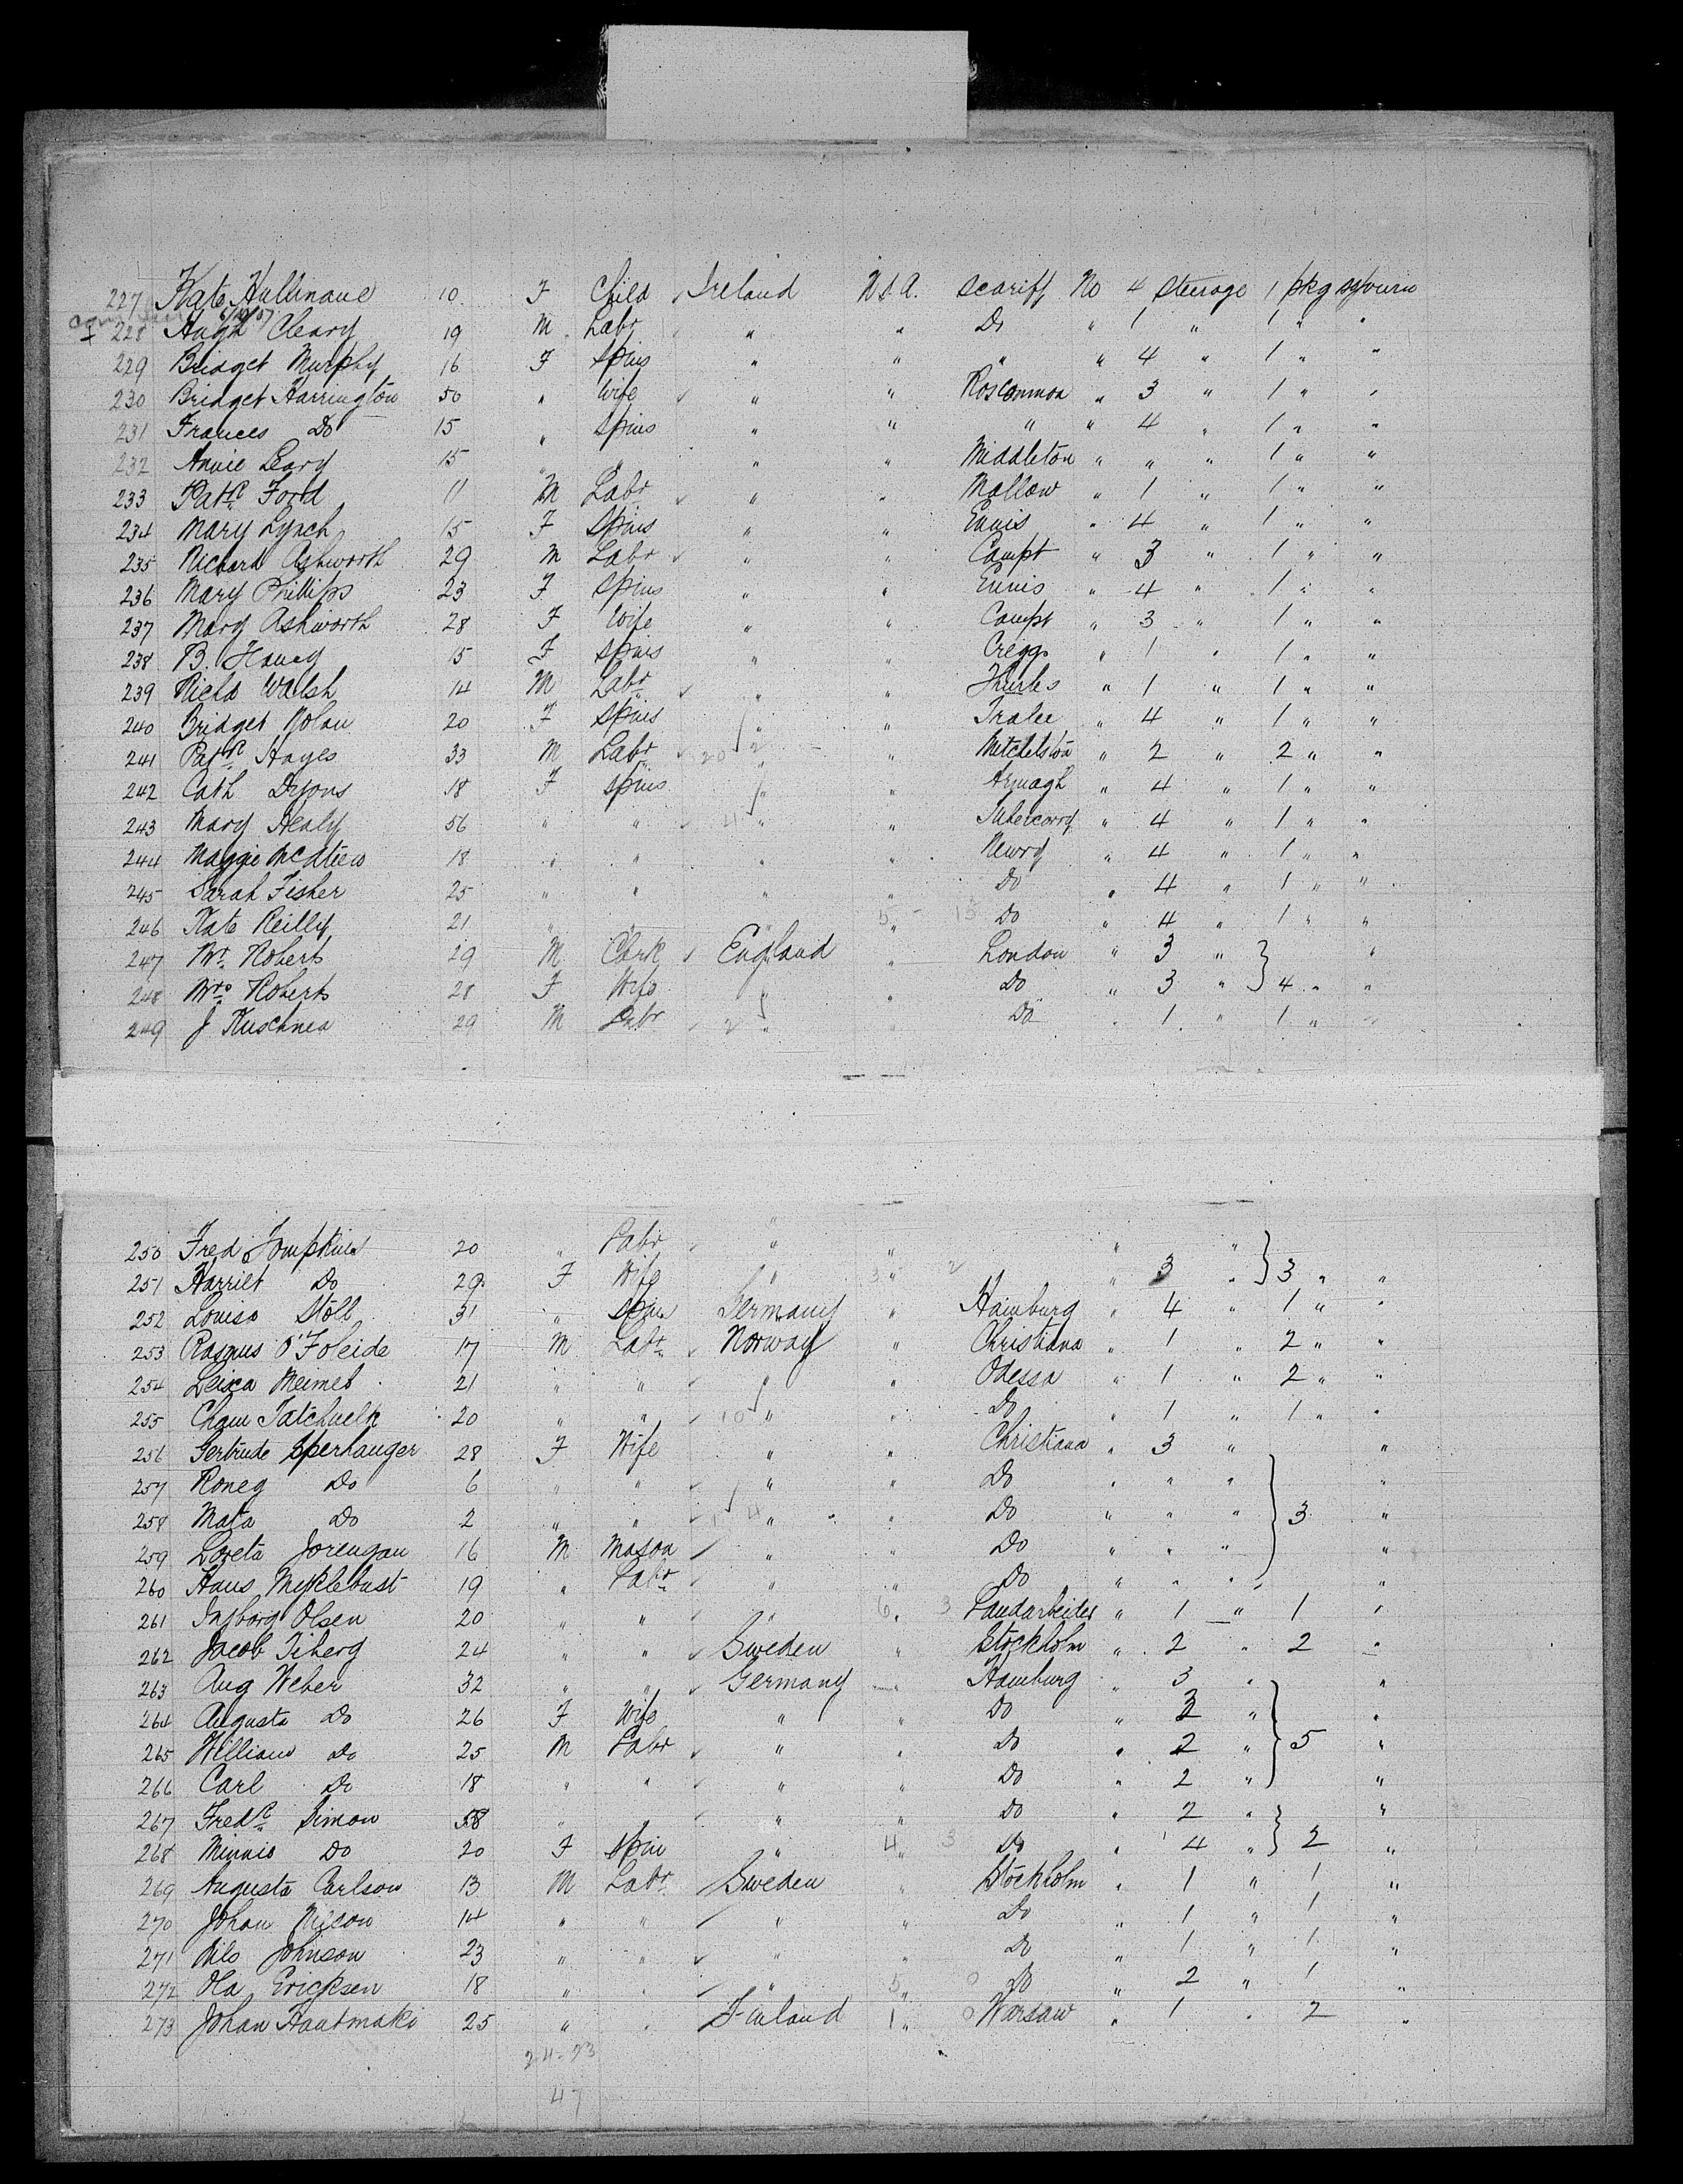 227 Kate Hullinane 10 F Child Ireland U.S.A. Scariff No 4 Steerage 1 pkg sojourn
228 Hugh Cleary 19 M Labr " " Do " 1 " 1 " "
229 Bridget Murphy 16 F Spins " " " " 4 " 1 " "
230 Bridget Harrington 50 " Wife " " Roscommon " 3 " 1 " "
231 Frances Do 15 " Spins " " " " 4 " 1 " "
232 Annie Leary 15 " " " " Middleton " " " 1 " "
233 Patk Ford 11 M Labr " " Mallow " 1 " 1 " "
234 Mary Lynch 15 F Spins " " Ennis " 4 " 1 " "
235 Richard Ashworth 29 M Labr " " Campt " 3 " 1 " "
236 Mary Phillips 23 F Spins " " Ennis " 4 " 1 " "
237 Mary Ashworth 28 F Wife " " Campt " 3 " 1 " "
238 B. Haney 15 F Spins " " Creggs " 1 " 1 " "
239 Richd Walsh 14 M Labr " " Thurles " 1 " 1 " "
240 Bridget Nolan 20 F Spins " " Tralee " 4 " 1 " "
241 Patk Hayes 33 M Labr 20 " " Mitchelston " 2 " 2 " "
242 Cath Dyons 18 F Spins " " Armagh " 4 " 1 " "
243 Mary Healy 56 " " 4 " " Tubercorry " 4 " 1 " "
244 Maggie McAteer 18 " " " " Newry " 4 " 1 " "
245 Sarah Fisher 25 " " " " Do " 4 " 1 " "
246 Kate Reilly 21 " " " 5 " 15 Do " 4 " 1 " "
247 Mr. Roberts 29 M Clerk England " London " 3 " "
248 Mrs Roberts 28 F Wife " " Do " 3 " 4 " "
249 J Kuschnea 29 M Labr 2 " " Do " 1 " 1 " "
250 Fred Tompkins 20 " Labr " " " "
251 Harriet Do 29 F Wife " 3 " 2 " 3 " 3 " "
252 Louisa Stöll 31 " Spin Germany " Hamburg " 4 " 1 " "
253 Rasmus O'Foleide 17 M Labr Norway " Christiana " 1 " 2 " "
254 Leisca Meimet 21 " " " " Odessa " 1 " 2 " "
255 Chaim Tatchuelk 20 " " 10 " " Do " 1 " 1 " "
256 Gertrude Sperhauger 28 F Wife " " Christiana " 3 " "
257 Roneg Do 6 " " " " Do " " " "
258 Mata Do 2 " " 4 " " Do " " " 3 "
259 Loreta Jorengan 16 M Mason " " Do " " " "
260 Hans Myklebust 19 " Labr " " Do " " " "
261 Ingborg Olsen 20 " " " 6 " 3 Landarbeiter " 1 " 1 "
262 Jacob Tiberg 24 " " Sweden " Stockholm " 2 " 2 "
263 Aug Weber 32 " " Germany " Hamburg " 3 " "
264 Augusta Do 26 F Wife " " Do " 3 " "
265 William Do 25 M Labr " " Do " 2 " 5 "
266 Carl Do 18 " " " " Do " 2 " "
267 Fredk Simon 58 " " " " Do " 2 " "
268 Minnie Do 20 F Spin " 4 " 3 Do " 4 " 2 "
269 Augusta Carlson 13 M Labr Sweden " Stockholm " 1 " 1 "
270 Johan Nilson 14 " " " " Do " 1 " 1 "
271 Nils Johnson 23 " " " " Do " 1 " 1 "
272 Ola Ericksen 18 " " " 5 " 0 Do " 2 " 1 "
273 Johan Hautmaki 25 " " Finland 1 " 0 Warsaw " 1 " 2 "
24-23
47